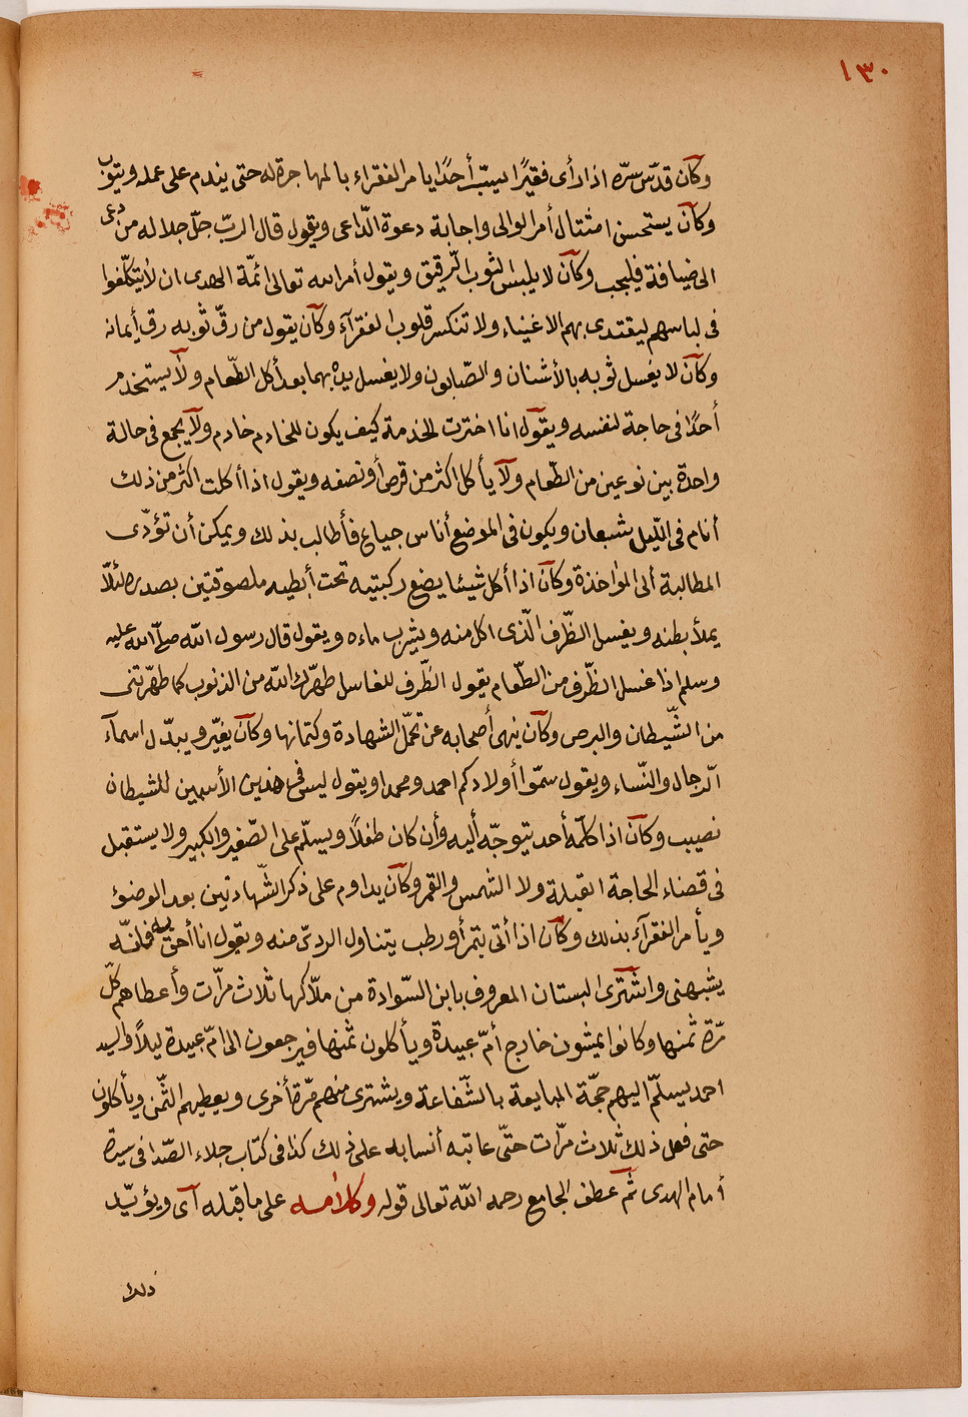 ١٣٠
وكان قدّس سرّه اذا رأى فقيرًا يسبّ أحدًا يامر الفقراء بالمهاجرة له حتى يندم على عمله ويتوب
وكان يستحسن امتثال أمر الوالى واجابة دعوة الدّاعى ويقول قال الربّ جلّ جلاله من دعى
الى ضيافة فليجب وكان لا يلبس الثوب الرّقيق ويقول أمر الله تعالى ائمّة الهدى ان لا يتكلّفوا
فى لباسهم ليقتدى بهم الاغنياء ولا تنكسر قلوب الفقرآء وكان يقول من رقّ ثوبه رق أيمانه
وكان لا يغسل ثوبه بالأشنان والصّابون ولا يغسل يده بهما بعد أكل الطّعام ولا يستخدم
أحدًا فى حاجة لنفسه ويقول انا اخترت للخدمة كيف يكون للخادم خادم ولا يجمع فى حالة
واحدة بين نوعين من الطّعام ولا يأكل اكثر من قرص أو نصفه ويقول اذا أكلت اكثر من ذلك
أنام فى اللّيل شبعان ويكون فى الموضع أناس جياع فأطالب بذلك ويمكن أن تؤدّى
المطالبة ألى المؤاخذة وكان اذا أكل شيئا يضع ركبتيه تحت أبطيه ملصوقتين بصدره لئلّا
يملأ بطنه ويغسل الظّرف الّذى اكل منه ويشرب ماءه ويقول قال رسول الله صلّى الله عليه
وسلم اذا غسل الظّرف من الطّعام يقول الظّرف للغاسل طهّرك الله من الذنوب كما طهّرتنى
من الشّيطان والبرص وكان ينهى أصحابه عن تحمّل الشهادة وكتمانها وكان يغيّر ويبدّل اسمآء
الرّجال والنّساء ويقول سمّوا أولادكم احمد ومحمدا ويقول ليس فى هذين الأسمين للشيطان
نصيب وكان اذا كلّمه أحد يتوجّه أليه وأن كان طفلاً ويسلّم على الصّغير والكبير ولا يستقبل
فى قضاء الحاجة القبلة ولا الشمس والقمر وكان يداوم على ذكر الشّهادتين بعد الوضوء
ويأمر الفقرآء بذلك وكان اذا أتى بتمر أو رطب يتناول الردىّ منه ويقول انا أحقّ به فانّه
يشبهنى واشترى البستان المعروف بابن السّوادة من ملّاكها ثلاث مرّات وأعطاهم كلّ
مرّة ثمنها وكانوا يمشون خارج أمّ عبيدة ويأكلون ثمنها فيرجعون الى امّ عبيدة ليلاً والسيد
احمد يسلّم اليهم حجّة المبايعة بالشّفاعة ويشترى منهم مرّة أخرى ويعطيهم الثّمن ويأكلون
حتى فعل ذلك ثلاث مرّات حتّى عاتبه أنسابه على ذلك كذا فى كتاب جلاء الصّدا فى سيرة
أمام الهدى ثم عطف الجامع رحمه الله تعالى قوله وكلامه على ما قبله آى ويؤيّد
ذلك